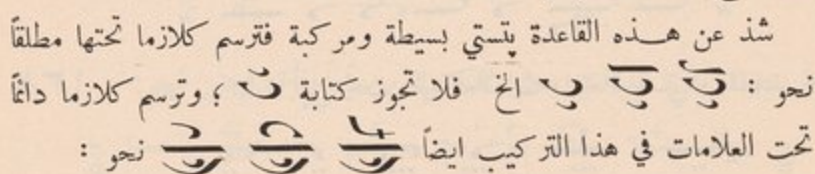 شذ عن هـذه القاعدة پتستي بسيطة ومركبة فترسم كلازما تحتها مطلقاً
نحو : الخ فلا تجوز كتابة ؛ وترسم كلازما دائماً
تحت العلامات في هذا التركيب ايضاً نحو :